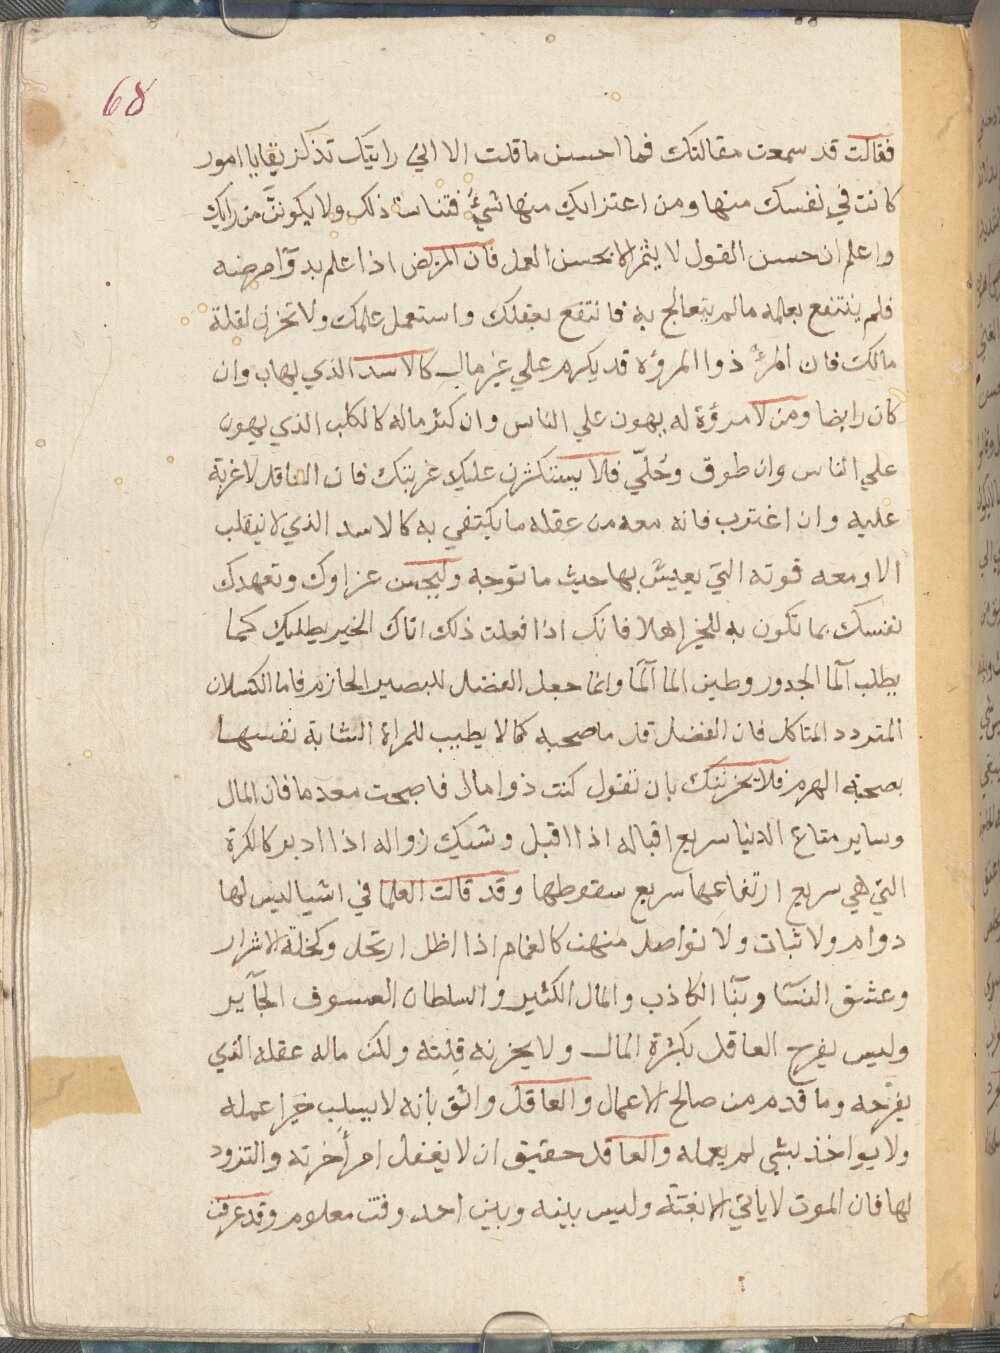 68
فقالت قد سمعت مقالتك فما احسن ما قلت الا اني رايتك تذكر بقايا امور
كانت في نفسك منها ومن اعترابك منها شيءُ فتناسا ذلك ولا يكوننَّ من رايك
واعلم ان حسن القول لا يثمر الا بحسن العمل فان المريض اذا علم بدوآ مرضه
فلم ينتفع بعلمه مالم يتعالج به فانتفع بعقلك واستعمل علمك ولا تحزن لقلة
مالك فان المرءُ ذوا المروُه قد يكرم علي غير مال كالاسد الذي يهاب وان
كان رابضا ومن لا مروُة له يهون علي الناس وان كثر ماله كالكلب الذي يهون
علي الناس وان طوق وحُلّي فلا يستكثرن عليك غربتك فان العاقل لا غربة
عليه وان اغترب فانه معه من عقله ما يكتفي به كالاسد الذي لا ينقلب
الا ومعه قوته التي يعيش بها حيث ما توجه وليحسن عزاوك وتعهدك
نفسك بما تكون به للخير اهلا فانك اذا فعلت ذلك اتاك الخير يطلبك كما
يطلب آلما الجدور وطين الما آلمآ وانما جعل الفضل للبصير الحازم فاما الكسلان
المتردد المتاكل فان الفضل قل ما صحبه كما لا يطيب للمراة الشابة نفسها
بصحبة الهرم فلا يحزننك بان تقول كنت ذوا مال فاصبحت معدما فان المال
وساير متاع الدنيا سريع اقباله اذا اقبل وشيك زواله اذا ادبر كالكرة
التي هي سريع ارتفاعها سريع سقوطها وقد قالت العلما في اشيا ليس لها
دوام ولا ثبات ولا تواصل منهن كالغمام اذا اظل ارتحل وكخلة الاشرار
وعشق النسآ وبنّا الكاذب والمال الكثير والسلطان العسوف الجآير
وليس يفرح العاقل بكثرة المال ولا يحزنه قلته ولكن ماله عقله الذي
يفرحه وما قدم من صالح الاعمال والعاقل واثق بانه لا يسلب خيرا عمله
ولا يواخذ بشي لم يعمله والعاقل حقيق ان لا يغفل امر أخرته والتزود
لها فان الموت لا ياتي الا بغتة وليس بينه وبين احد وقت معلوم وقد عرفت